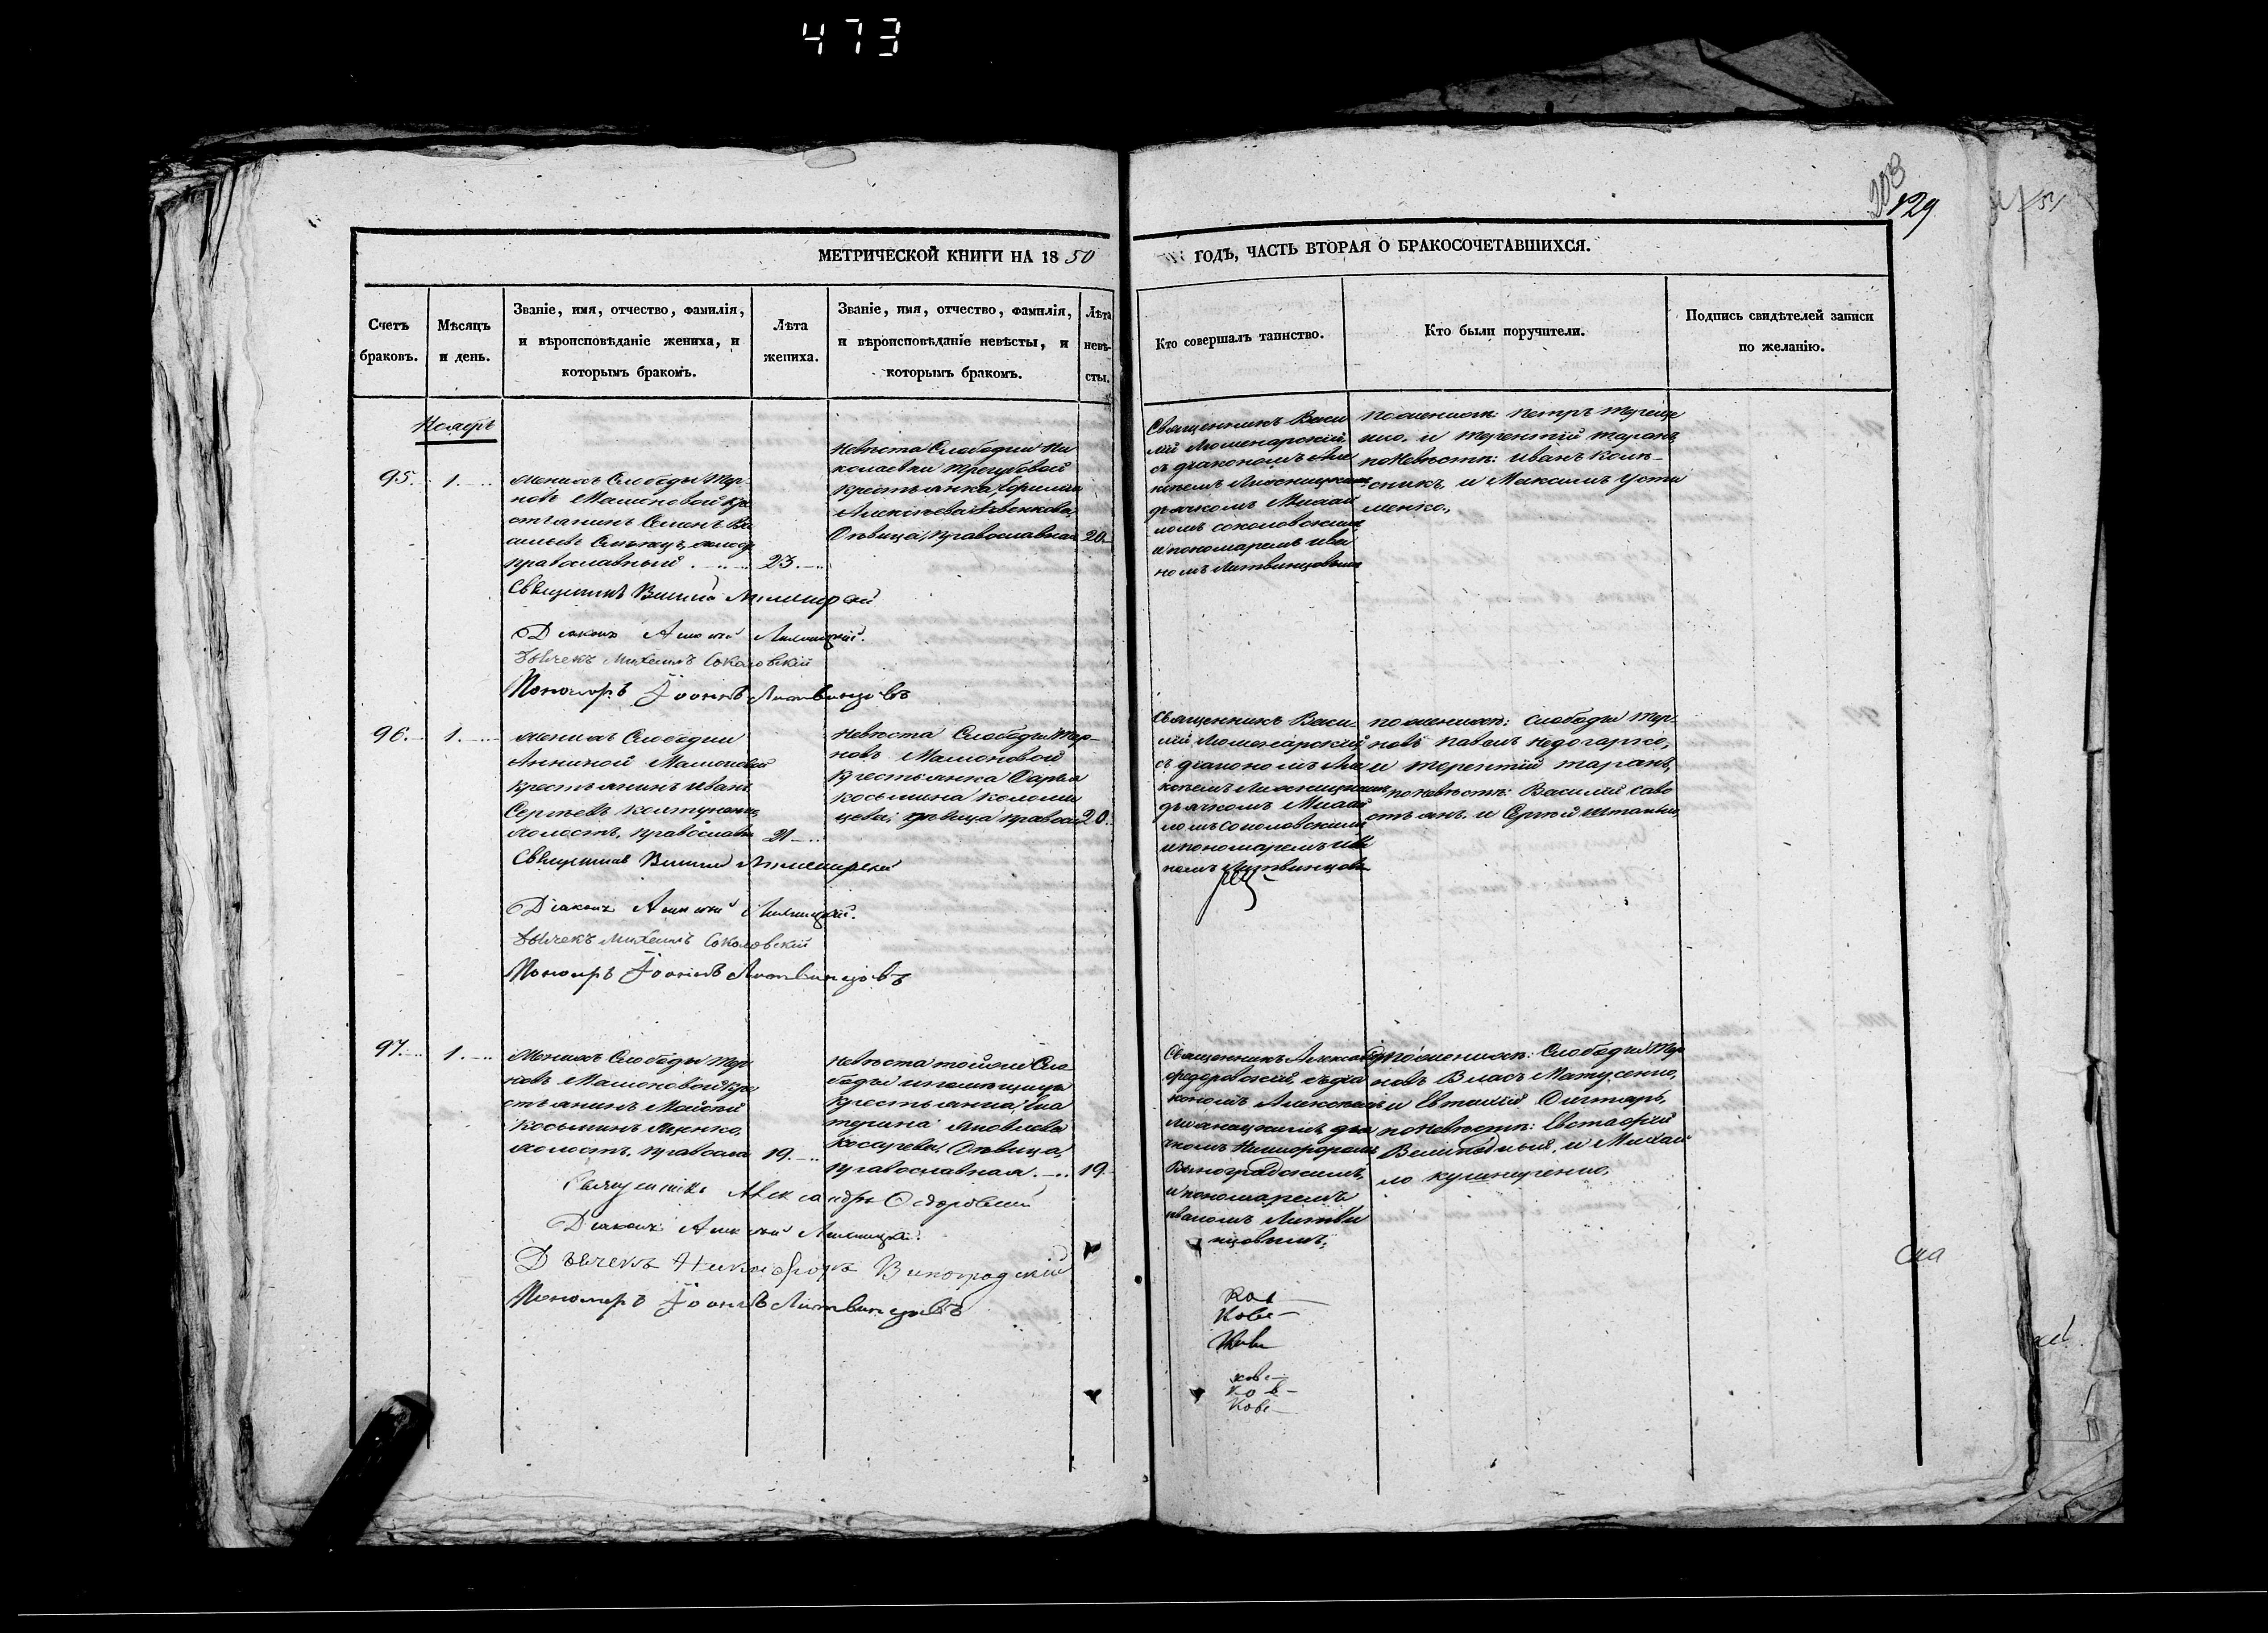 473
203
129
МЕТРИЧЕСКОЙ КНИГИ НА 1850
ГОДЪ, ЧАСТЬ ВТОРАЯ О БРАКОСОЧЕТАВШИХСЯ.
Счетъ браковъ.
Мѣсяцъ и день.
Званіе, имя, отчество, фамилія,
и вѣроисповѣданіе жениха, и
которымъ бракомъ.
Лѣта
жениха.
Званіе, имя, отчество, фамилія,
и вѣроисповѣданіе невѣсты, и
которымъ бракомъ.
Лѣта
невѣ-
сты.
Кто совершалъ таинство.
Кто были поручители.
Подпись свидѣтелей записи
по желанію.
Ноябрь
95.
1.
женихъ Слободы Тер
новъ Машоновой кре
стьянинъ Семенъ Ва
сильевъ
православный
23.
невѣста Слободы Ни
колаевки Трегубовой
крестьянка
Алексѣева
Дѣвица, православная
20
Священникъ Васи
лій Люменарскій,
съ діакономъ Але
ксѣемъ
дьячкомъ Михаи
ломъ Соколовскимъ
и пономаремъ Ива
номъ Литвинцовымъ
по женихѣ: Петръ Тереще
нко, и Терентій Таранъ,
по невѣстѣ: Иванъ Колѣ-
сникъ, и Максимъ Усти
менко,
Священникъ Василій Люменарскій
Діаконъ Алексѣй
Дьячекъ Михаилъ Соколовскій
Пономарь Іоаннъ Литвинцовъ
96.
1.
женихъ Слободы
Анниной Машоновой
крестьянинъ Иванъ
Сергѣевъ
холостъ, православн
21
невѣста Слободы Тер-
новъ Машоновой
крестьянка Дарья
Косьмина Коломи
цева, дѣвица правосл
20.
Священникъ Васи-
лій Люменарскій,
съ діакономъ Але
ксѣемъ
дьячкомъ Михаи
ломъ Соколовскимъ
и пономаремъ Ива
номъ Литвинцовы
по женихѣ: Слободы Тер-
новъ Павелъ
и Терентій Таранъ,
по невѣстѣ: Василій Саво
стьянъ. и Сергѣй
Священникъ Василій Люменарскій
Діаконъ Алексѣй
Дьячекъ Михаилъ Соколовскій
Пономарь Іоаннъ Литвинцовъ
97.
1.
Женихъ Слободы Тер
новъ Машоновой кре
стьянинъ Моисей
Косьминъ Яценко,
холостъ, правосла
19.
невѣста той же Сло
боды и помѣщицы
крестьянка, Ека
терина Яковлева
Косарева, Дѣвица,
православная.
19.
Священникъ Александръ
Федоровскій, съ діа
кономъ Алексѣемъ
дья
чкомъ Никифоромъ
Виноградскимъ,
и пономаремъ
Иваномъ Литви
нцовымъ,
по женихѣ: Слободы Тер
новъ Власъ Матусенко,
и Евтихій Дихтярь,
по невѣстѣ: Евстафій
и Михаи
ло Кушнаренко,
Священникъ Александръ Федоровскій
Діаконъ Алексѣй
Дьячекъ Никифоръ Виноградскій
Пономарь Іоаннъ Литвинцовъ
Ков
Кове
Кове
кове
Ков
Кове